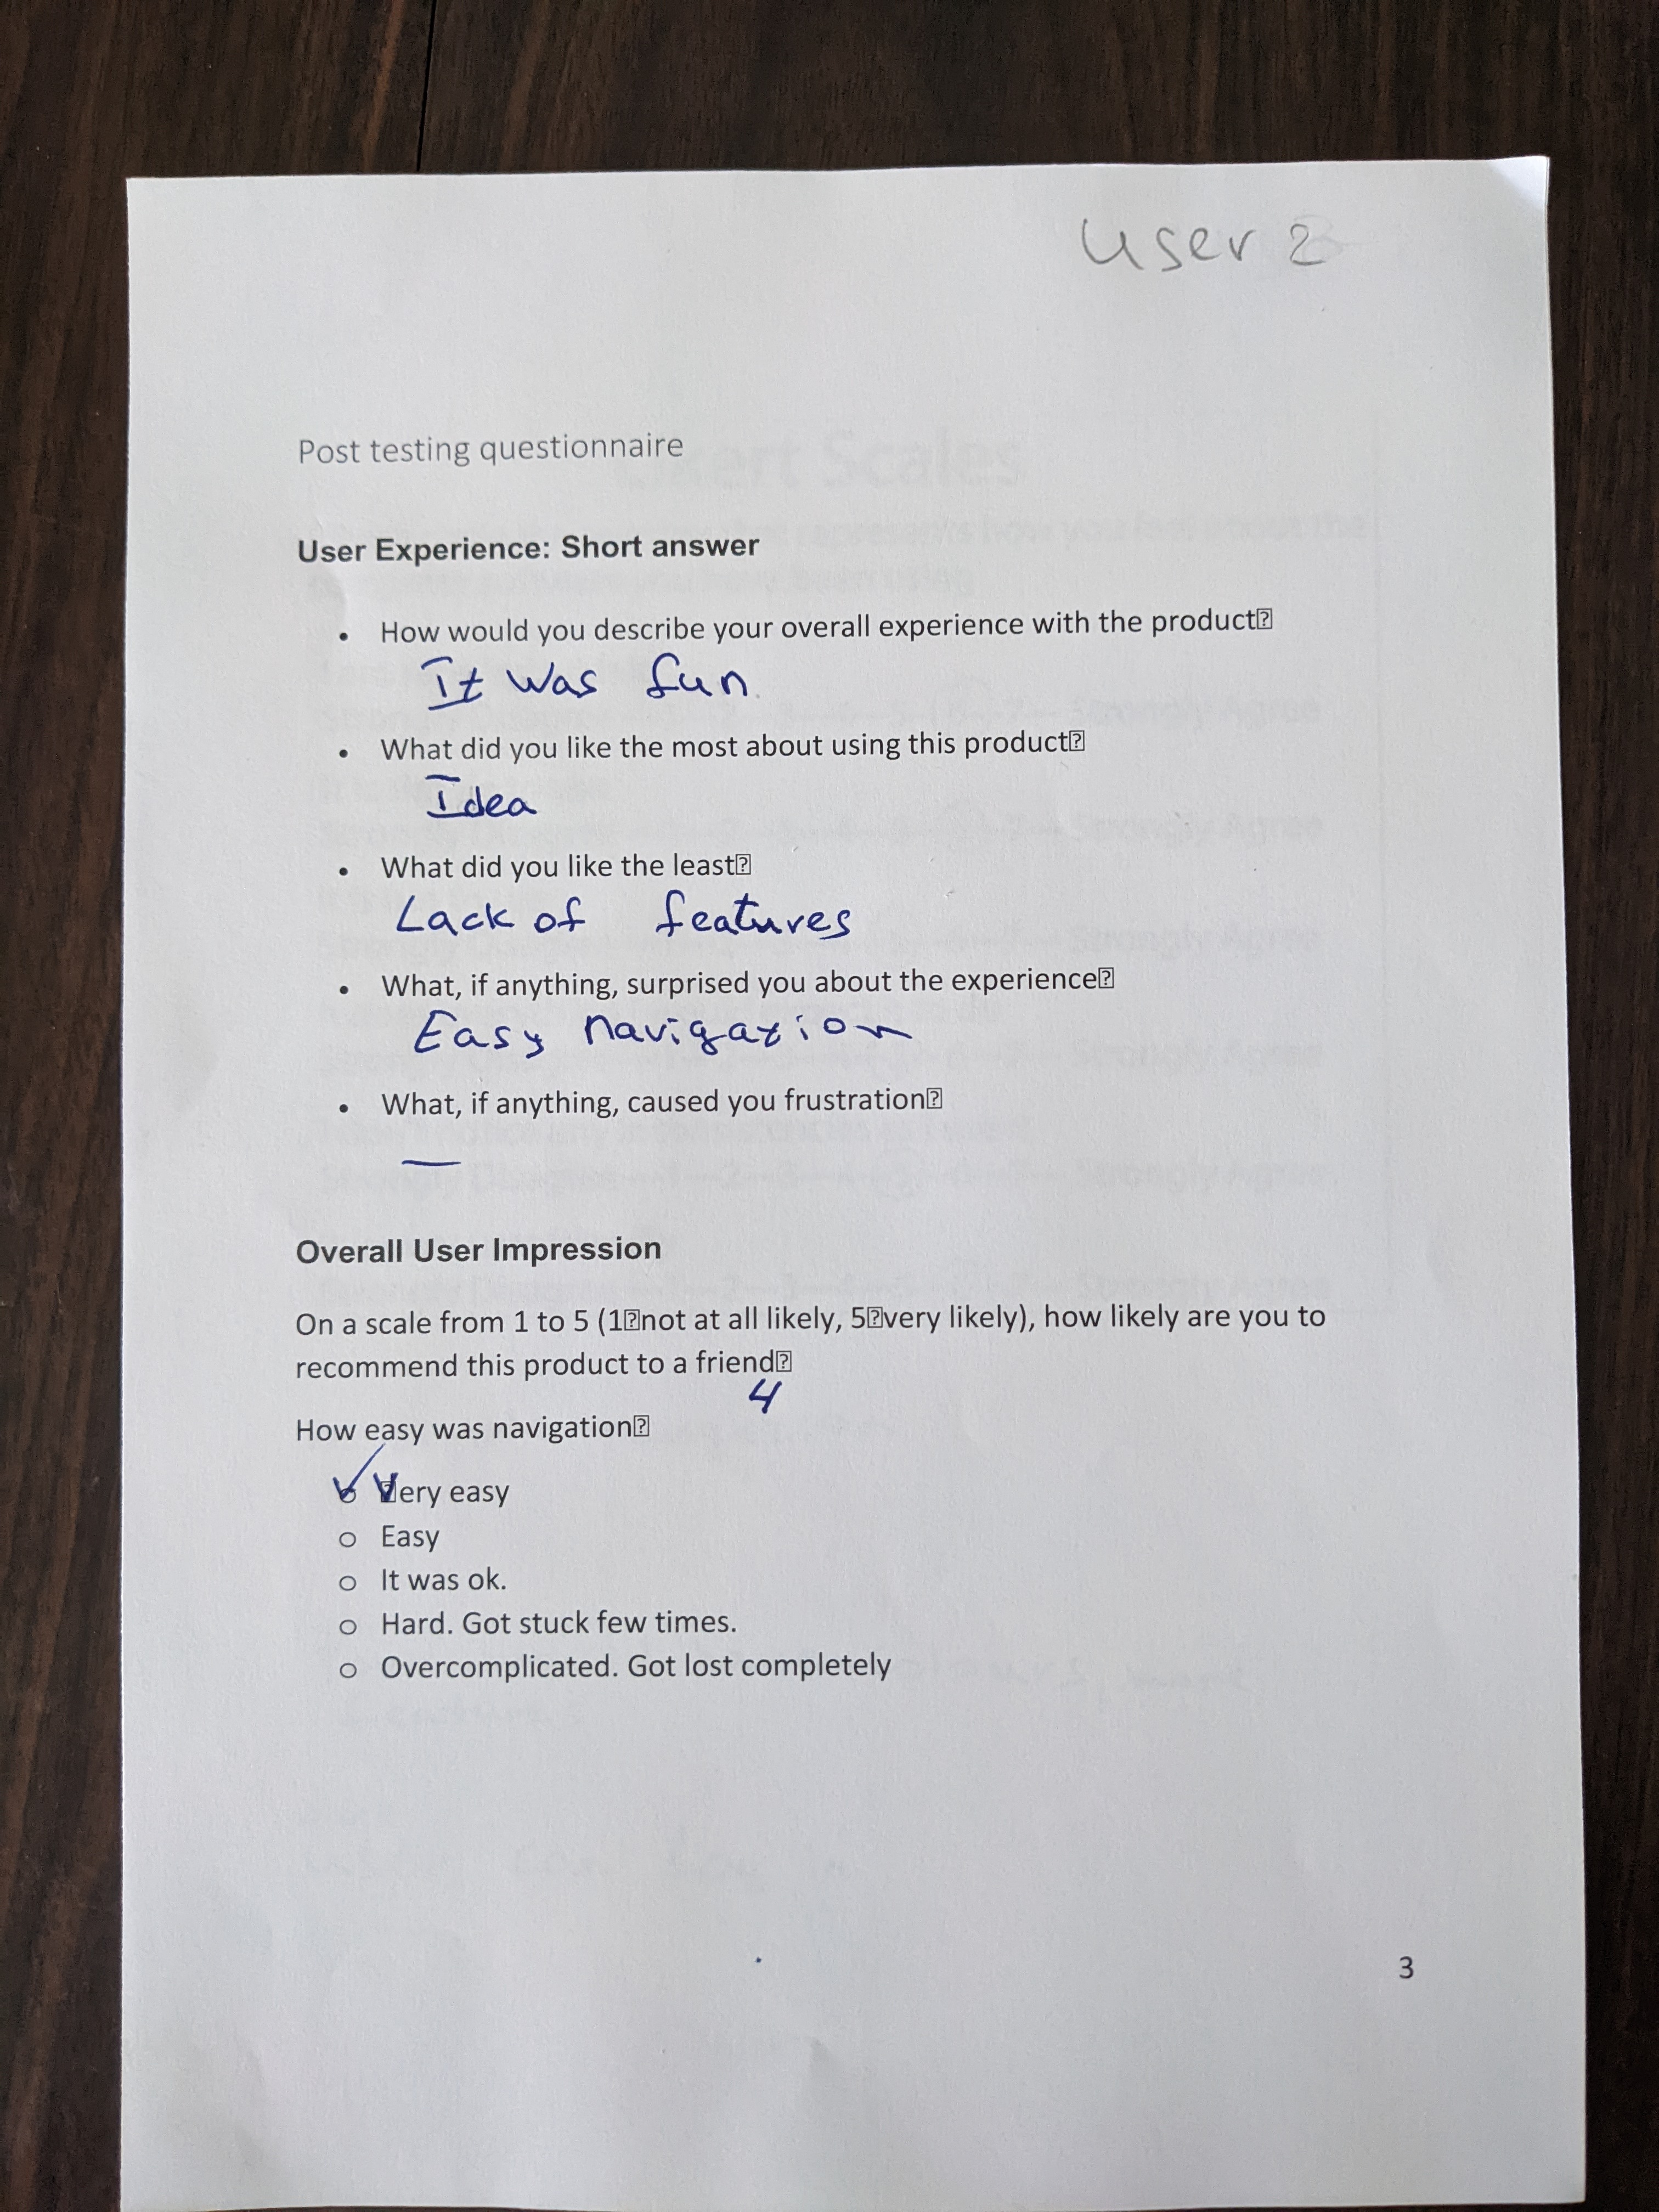 User 2
Post testing questionnaire
User Experience: Short answer
• How would you describe your overall experience with the product⍰
It was fun
• What did you like the most about using this product⍰
Idea
• What did you like the least⍰
Lack of features
• What, if anything, surprised you about the experience⍰
Easy navigation
• What, if anything, caused you frustration⍰
—
Overall User Impression
On a scale from 1 to 5 (1⍰not at all likely, 5⍰very likely), how likely are you to
recommend this product to a friend⍰
4
How easy was navigation⍰
✓ Very easy
o Easy
o It was ok.
o Hard. Got stuck few times.
o Overcomplicated. Got lost completely
3